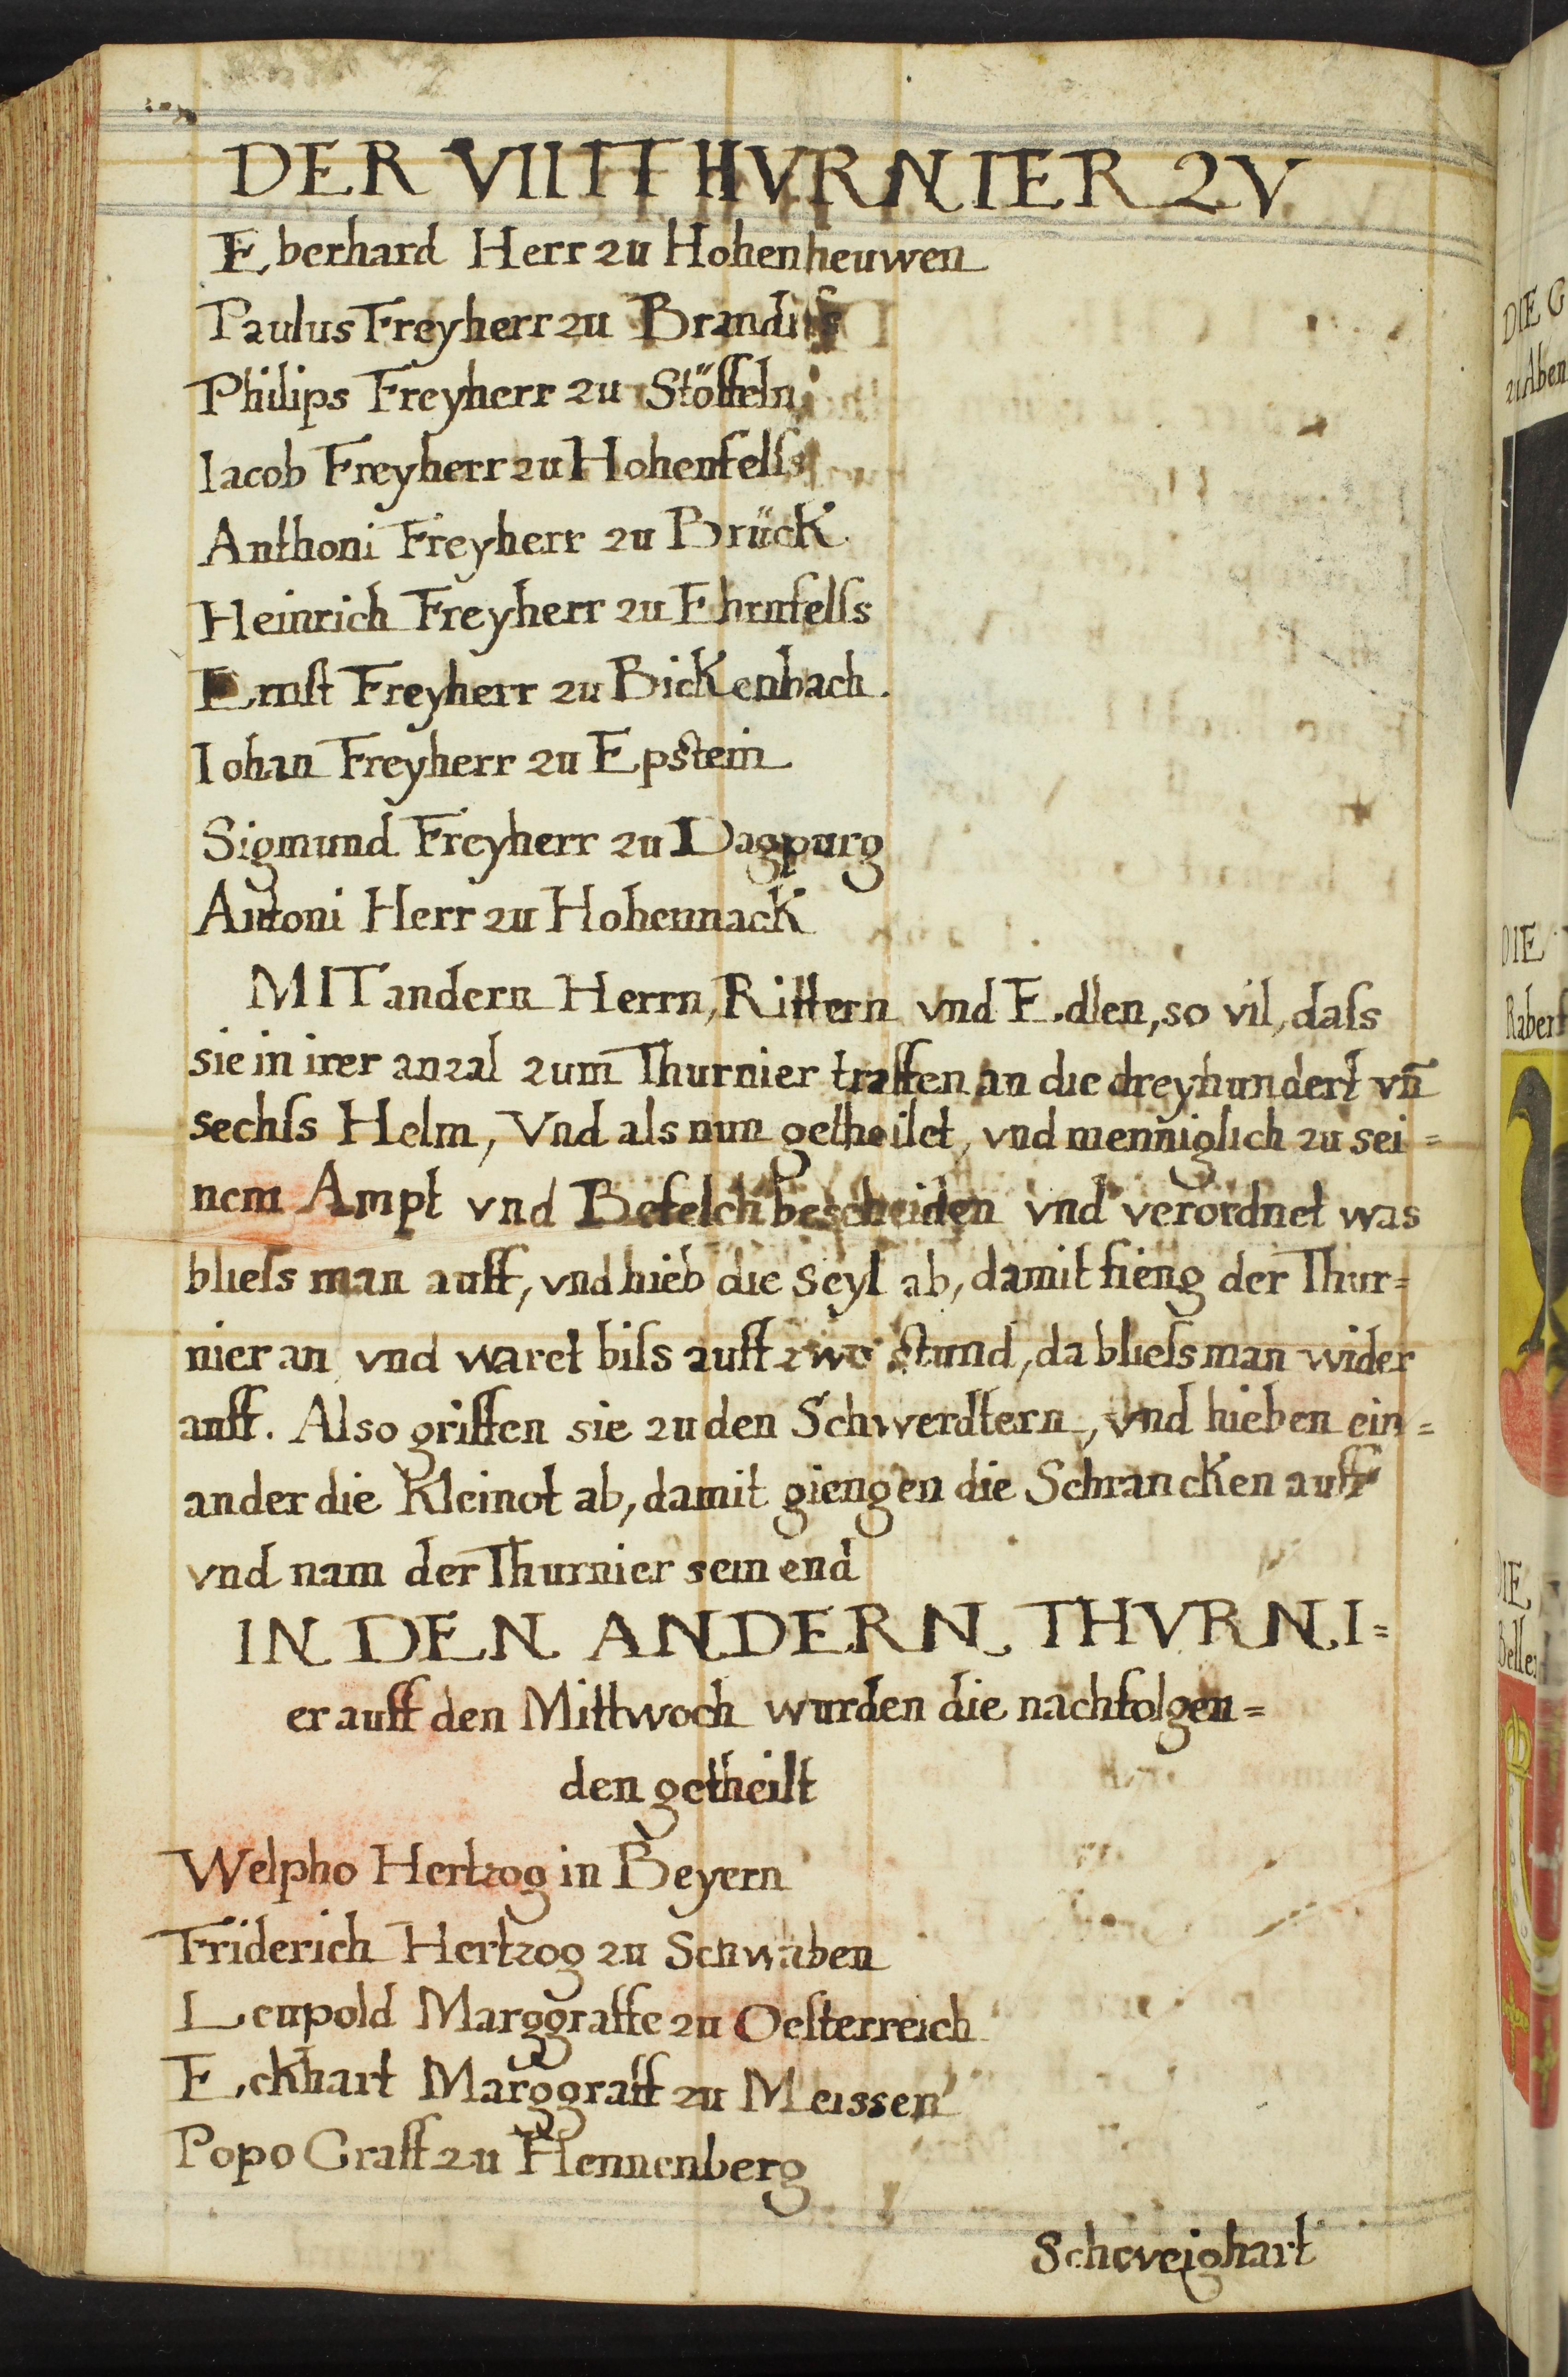 DER VIIII THVRNIER ZV
Eberhard Herr zu Hohenheuwen
Paulus Freyherr zu Brandiſs
Philips Freyherr zu Stöffeln
Iacob Freyherr zu Hohenfelſs
Anthoni Freyherr zu Brück
Heinrich Freyherr zu Ehrnfelſs
Ernſt Freyherr zu Bickenbach.
Iohan Freyherr zu Epstein
Sigmund Freyherr zu Dagpurg
Antoni Herr zu Hohennack
MIT andern Herrn, Rittern vnd Edlen, so vil, daſs
sie in irer anzal zum Thurnier traffen an die dreyhundert vn̄
sechſs Helm, Vnd als nun getheilet, vnd menniglich zu sei=
nem Ampt vnd Befelch bescheiden vnd verordnet was
blieſs man auff, vnd hieb die Seyl ab, damit fieng der Thur=
nier an vnd waret biſs auff zwo Stund, da blieſs man wider
auff. Also griffen sie zu den Schwerdtern, vnd hieben ein=
ander die Kleinot ab, damit giengen die Schrancken auff
vnd nam der Thurnier sein end
IN DEN ANDERN THVRNI=
er auff den Mittwoch wurden die nachfolgen=
den getheilt
Welpho Hertzog in Beyern
Friderich Hertzog zu Schwaben
Leupold Marggraffe zu Oeſterreich
Eckhart Marggraff zu Meissen
Popo Graff zu Hennenberg
Schweighart
DIE G
zu Aben
DIE
Raben
DIE
Belle